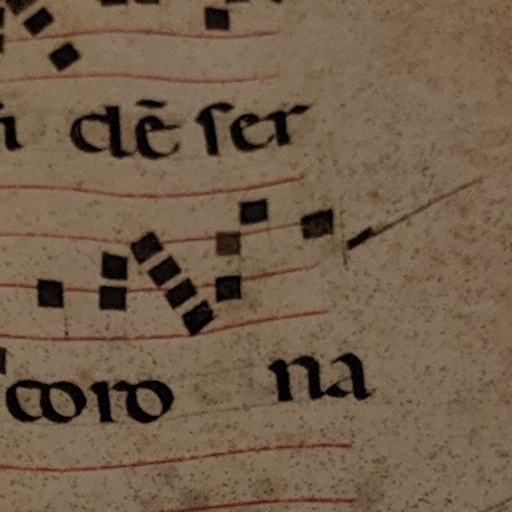 dē ſer
coro na